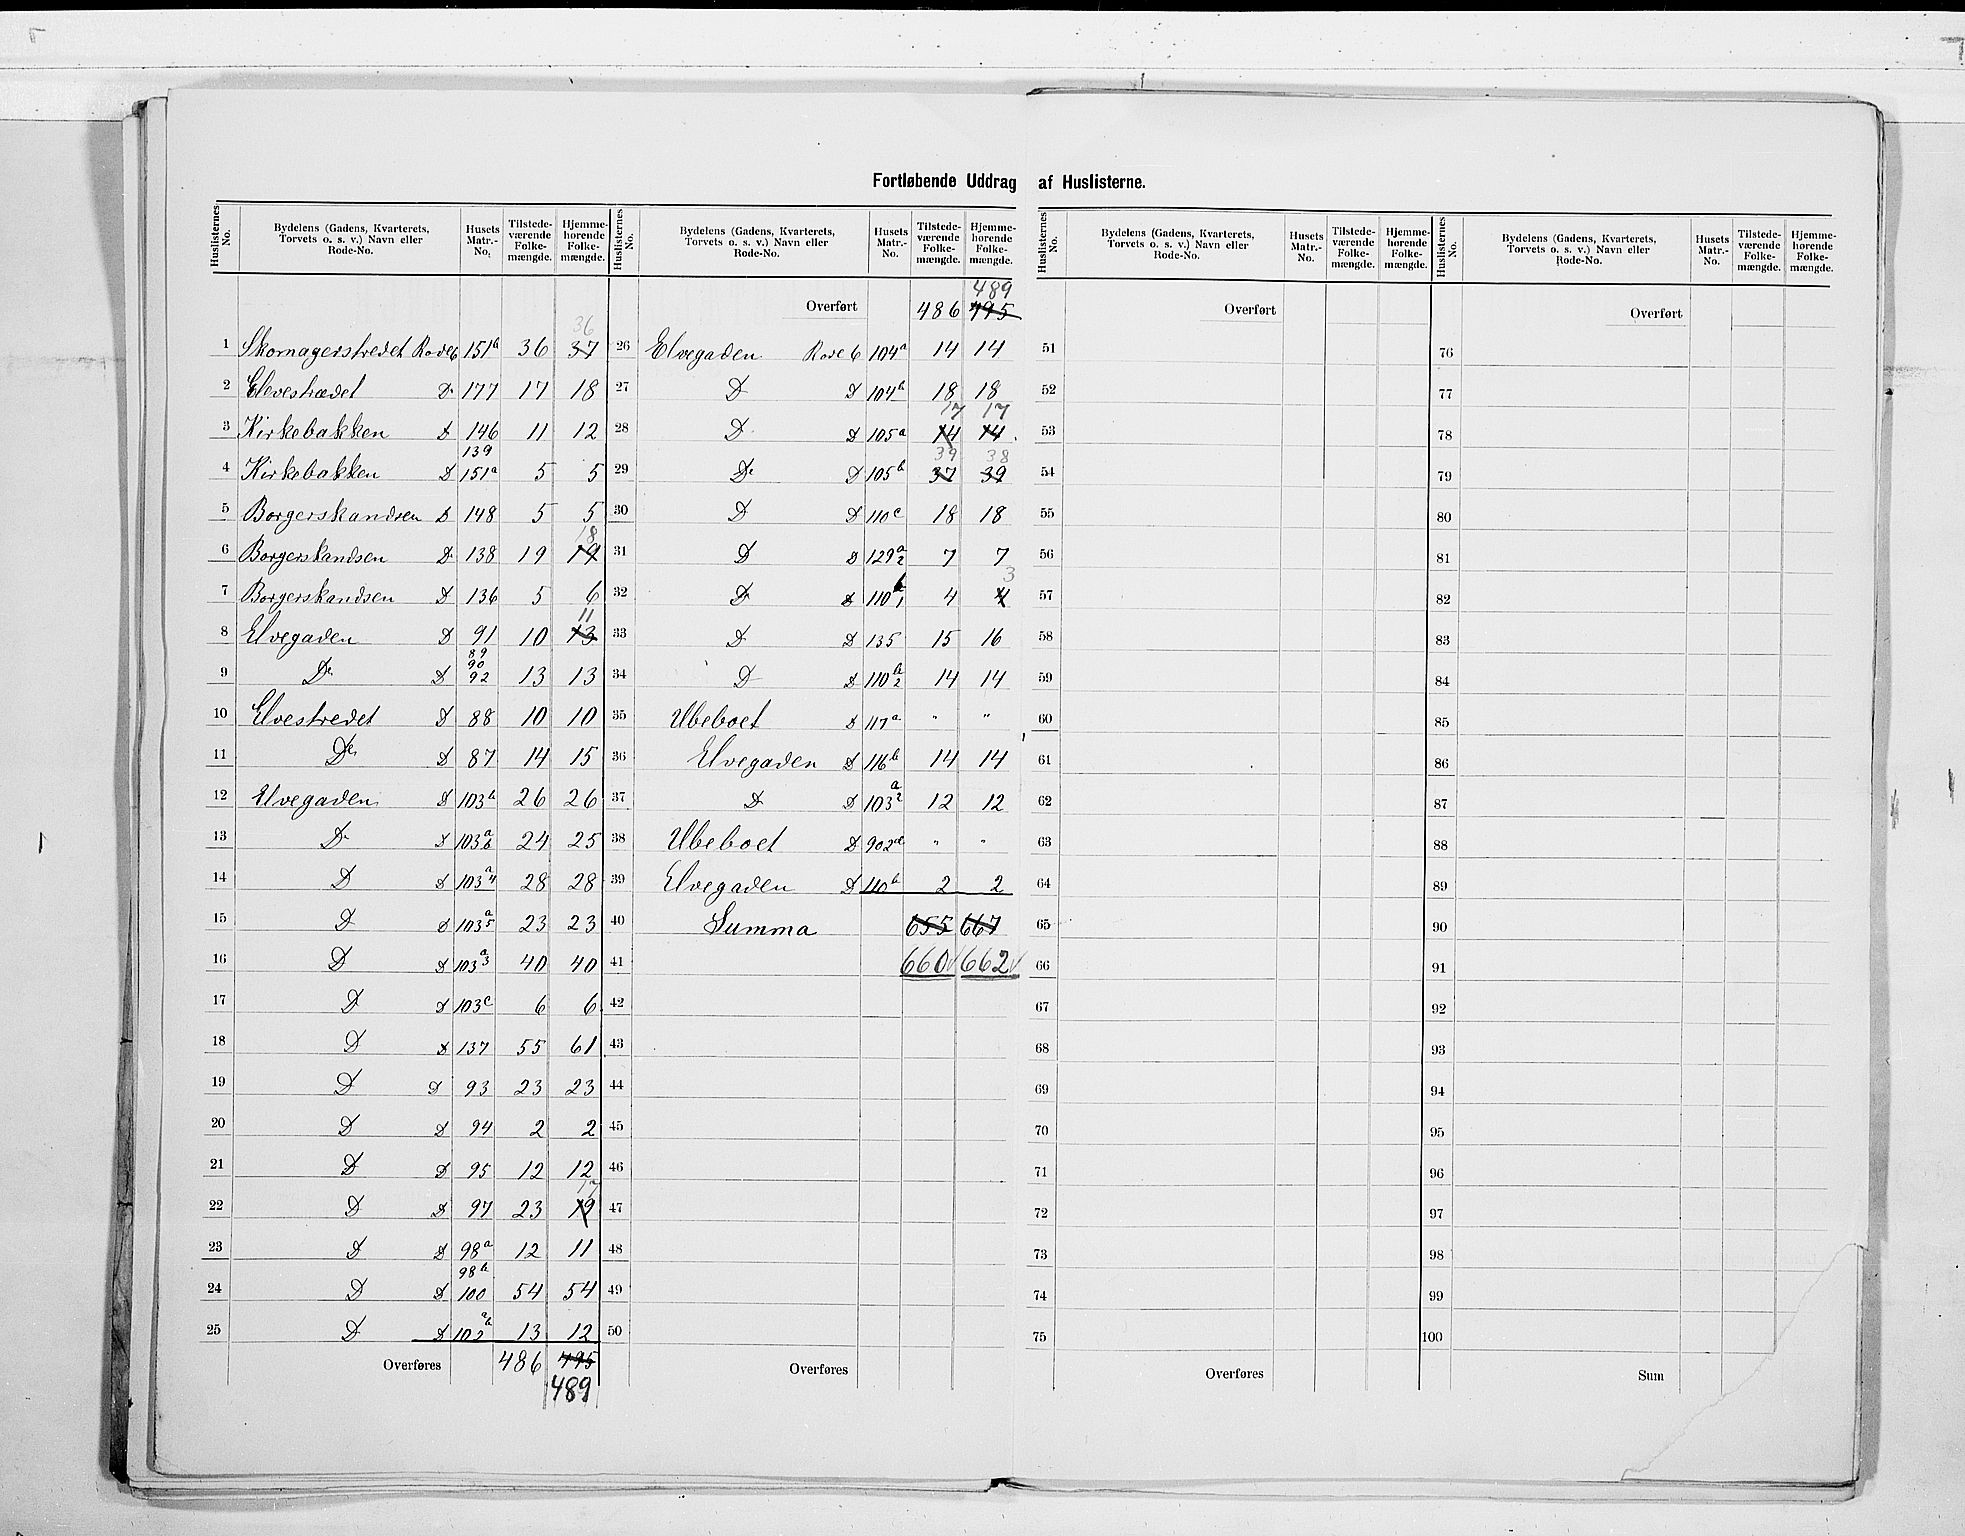 Fortløbende Uddrag af Huslisterne.
Huslisternes No. Bydelens (Gadens, Kvarterets, Torvets o. s. v.) Navn eller Rode-No. Husets Matr.-No. Tilstede-værende Folke-mængde. Hjemme-hørende Folke-mængde.
1 Skomagerstredet Rode 6 151b 36 37 36
2 Elevestrædet D 177 17 18
3 Kirkebakken D 146 11 12
4 Kirkebakken D 139 151a 5 5
5 Borgerskandsen D 148 5 5
6 Borgerskandsen D 138 19 19 18
7 Borgerskandsen D 136 5 6
8 Elvegaden D 91 10 13 11
9 Do D 89 90 92 13 13
10 Elvestredet D 88 10 10
11 Do D 87 14 15
12 Elvegaden D 103b 26 26
13 D D 103a6 24 25
14 D D 103a4 28 28
15 D D 103a5 23 23
16 D D 103a3 40 40
17 D D 103c 6 6
18 D D 137 55 61
19 D D 93 23 23
20 D D 94 2 2
21 D D 95 12 12
22 D D 97 23 19 17
23 D D 98a 12 11
24 D D 98b 100 54 54
25 D D 102 13 12
Overføres 486 495
489
Huslisternes No. Bydelens (Gadens, Kvarterets, Torvets o. s. v.) Navn eller Rode-No. Husets Matr.-No. Tilstede-værende Folke-mængde. Hjemme-hørende Folke-mængde.
489
Overført 486 495
26 Elvegaden Rode 6 104a 14 14
27 D D 104b 18 18
28 D D 105a 14 17 14 17
29 D D 105b 37 39 39 38
30 D D 110c 18 18
31 D D 129a2 7 7
32 D D 110b1 4 4 3
33 D D 135 15 16
34 D D 110a2 14 14
35 Ubeboet D 117a " "
36 Elvegaden D 116b 14 14
37 D D 103a2 12 12
38 Ubeboet D 902 " "
39 Elvegaden D 110b 2 2
40 Summa 655 667
41 660 662
42
43
44
45
46
47
48
49
50
Overføres
Huslisternes No. Bydelens (Gadens, Kvarterets, Torvets o. s. v.) Navn eller Rode-No. Husets Matr.-No. Tilstede-værende Folke-mængde. Hjemme-hørende Folke-mængde.
Overført
51
52
53
54
55
56
57
58
59
60
61
62
63
64
65
66
67
68
69
70
71
72
73
74
75
Overføres
Huslisternes No. Bydelens (Gadens, Kvarterets, Torvets o. s. v.) Navn eller Rode-No. Husets Matr.-No. Tilstede-værende Folke-mængde. Hjemme-hørende Folke-mængde.
Overført
76
77
78
79
80
81
82
83
84
85
86
87
88
89
90
91
92
93
94
95
96
97
98
99
100
Sum